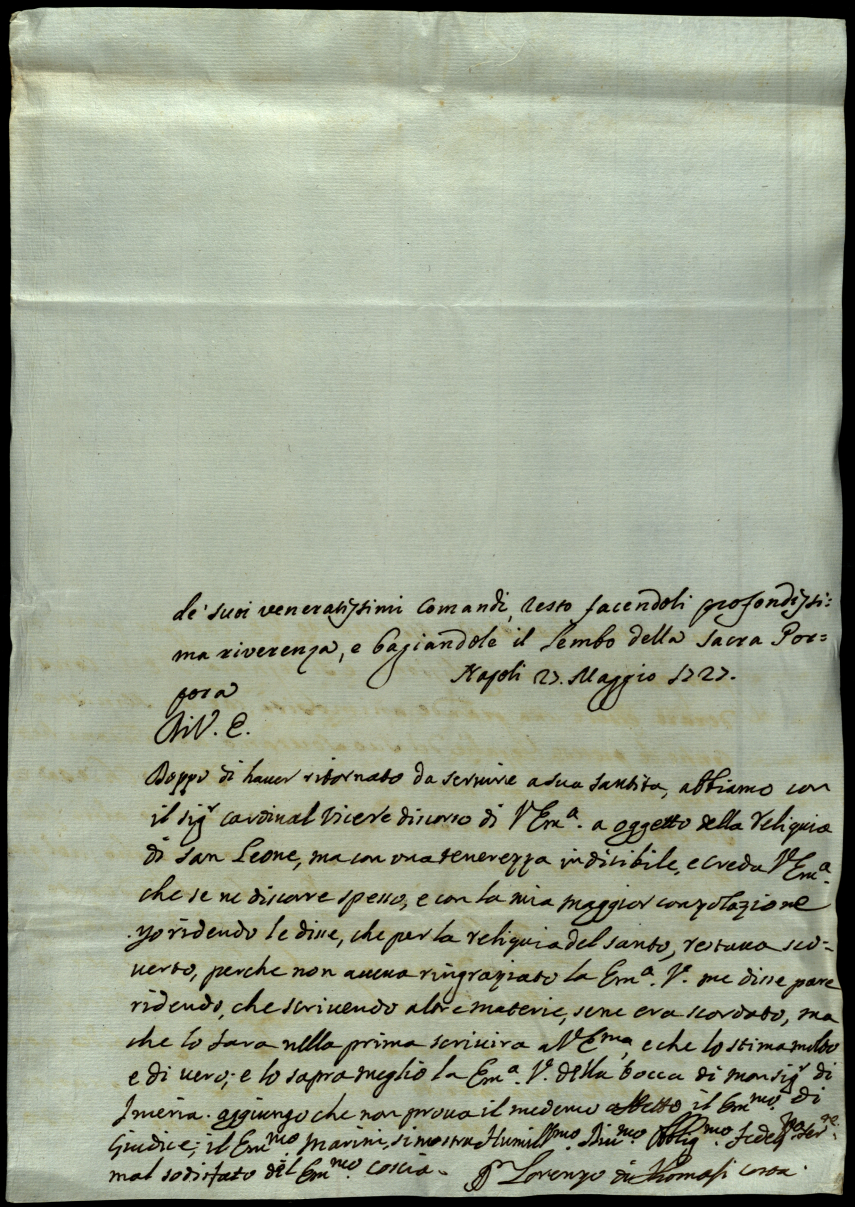 de' suoi veneratissimi Comandi, resto facendoli profondissi=
ma riverenza, e bagiandole il lembo della sacra Por=
pora
Napoli 27. Maggio 1727.
Di V. E.
Doppo di hauer ritornato da seruire a sua santita, abbiamo con
il sigr cardinal Vicere discorso di V Ema. a oggetto della reliquia
di san Leone, ma con una tenerezza indicibile, e creda V Ema.
che se ne discorre spesso, e con la mia maggior conzolazione
yo ridendo le disse, che per la reliquia del santo, restaua sco=
uerto, perche non aueua ringraziato la Ema. V. me disse pare
ridendo, che scriuendo altre materie, sene era scordato, ma
che lo fara nella prima scriuira a V Ema, e che lo stima molto
e di uero; e lo sapra meglio la Ema. V. della bocca di monsigr di
Inueria. aggiungo che non proua il medemo affetto il Emmo. di
Giudice; il Emmo Marini, si mostra
mal sodisfato del Emmo coscia.
Humillmo Diumo Obbligmo Ser.
Lorenzo di Thomasi